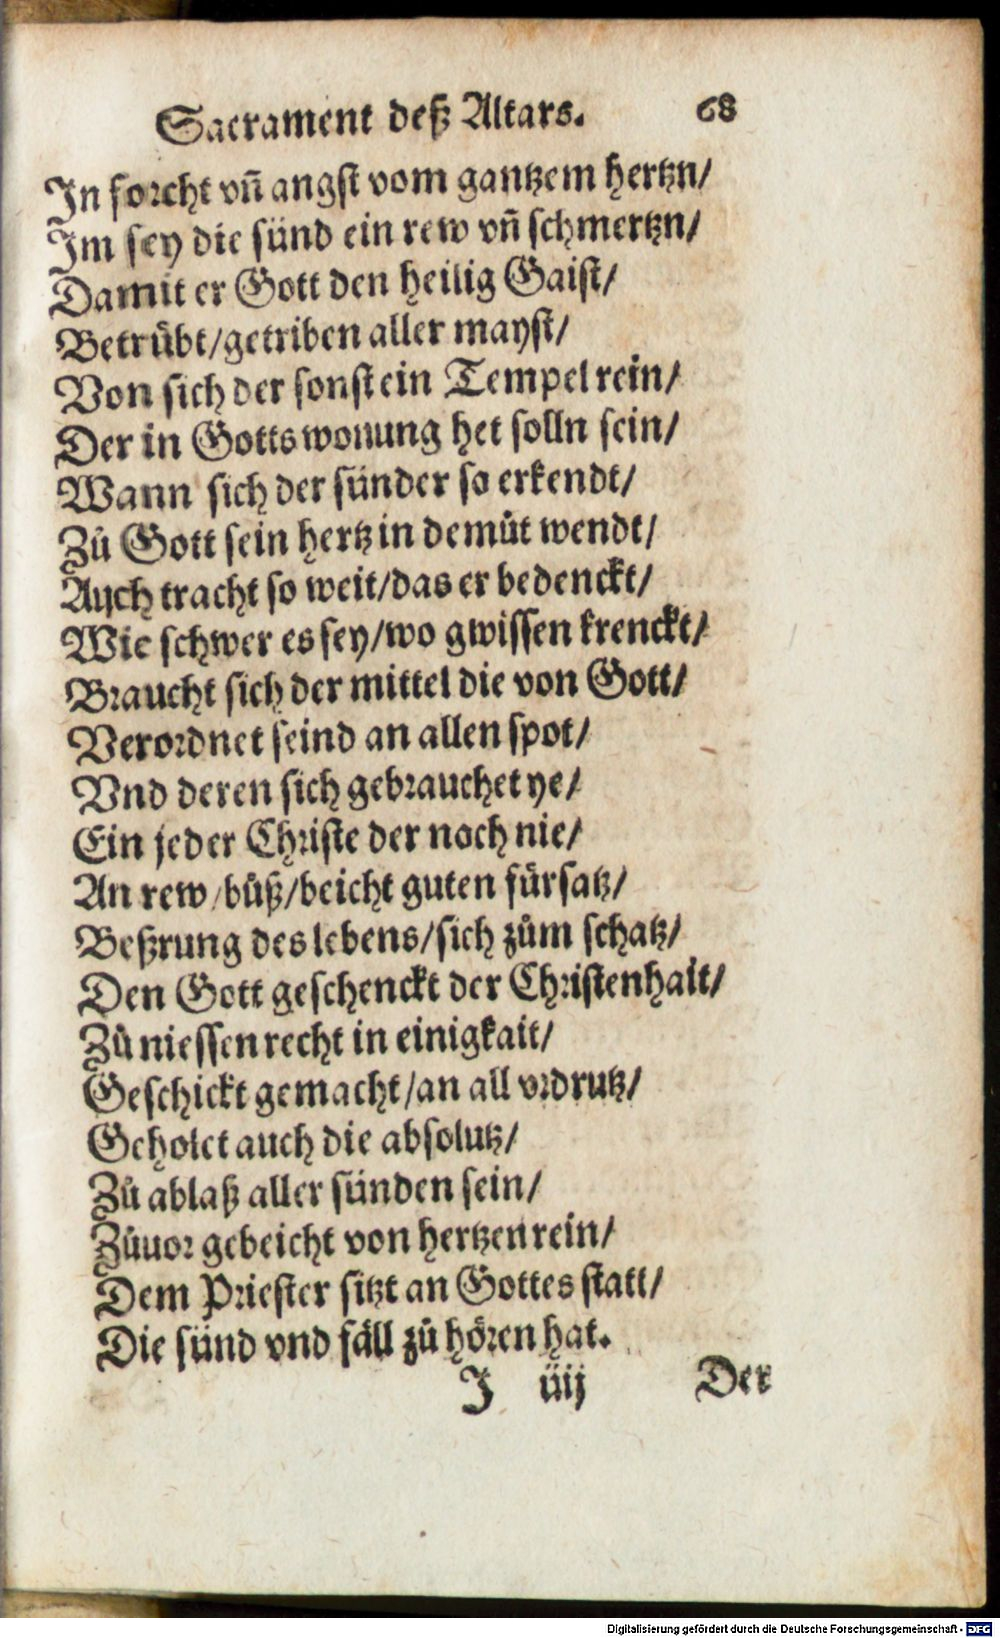 Sacrament deß Altars. 68
In forcht vñ angst vom gantzem hertzn/
Im sey die sünd ein rew vñ schmertzn/
Damit er Gott den heilig Gaist/
Betrübt/getriben aller mayst/
Von sich der sonst ein Tempel rein/
Der in Gotts wonung het solln sein/
Wann sich der sünder so erkendt/
Zů Gott sein hertz in demůt wendt/
Auch tracht so weit/das er bedenckt/
Wie schwer es sey/wo gwissen krenckt/
Braucht sich der mittel die von Gott/
Verordnet seind an allen spot/
Vnd deren sich gebrauchet ye/
Ein jeder Christe der noch nie/
An rew/bůß/beicht guten fürsatz/
Beßrung des lebens/sich zům schatz/
Den Gott geschenckt der Christenhait/
Zů niessen recht in einigkait/
Geschickt gemacht/an all vrdrutz/
Geholet auch die absolutz/
Zů ablaß aller sünden sein/
Zůuor gebeicht von hertzen rein/
Dem Priester sitzt an Gottes statt/
Die sünd vnd fäll zů hören hat.
I iiij Der
Digitalisierung gefördert durch die Deutsche Forschungsgemeinschaft - DFG